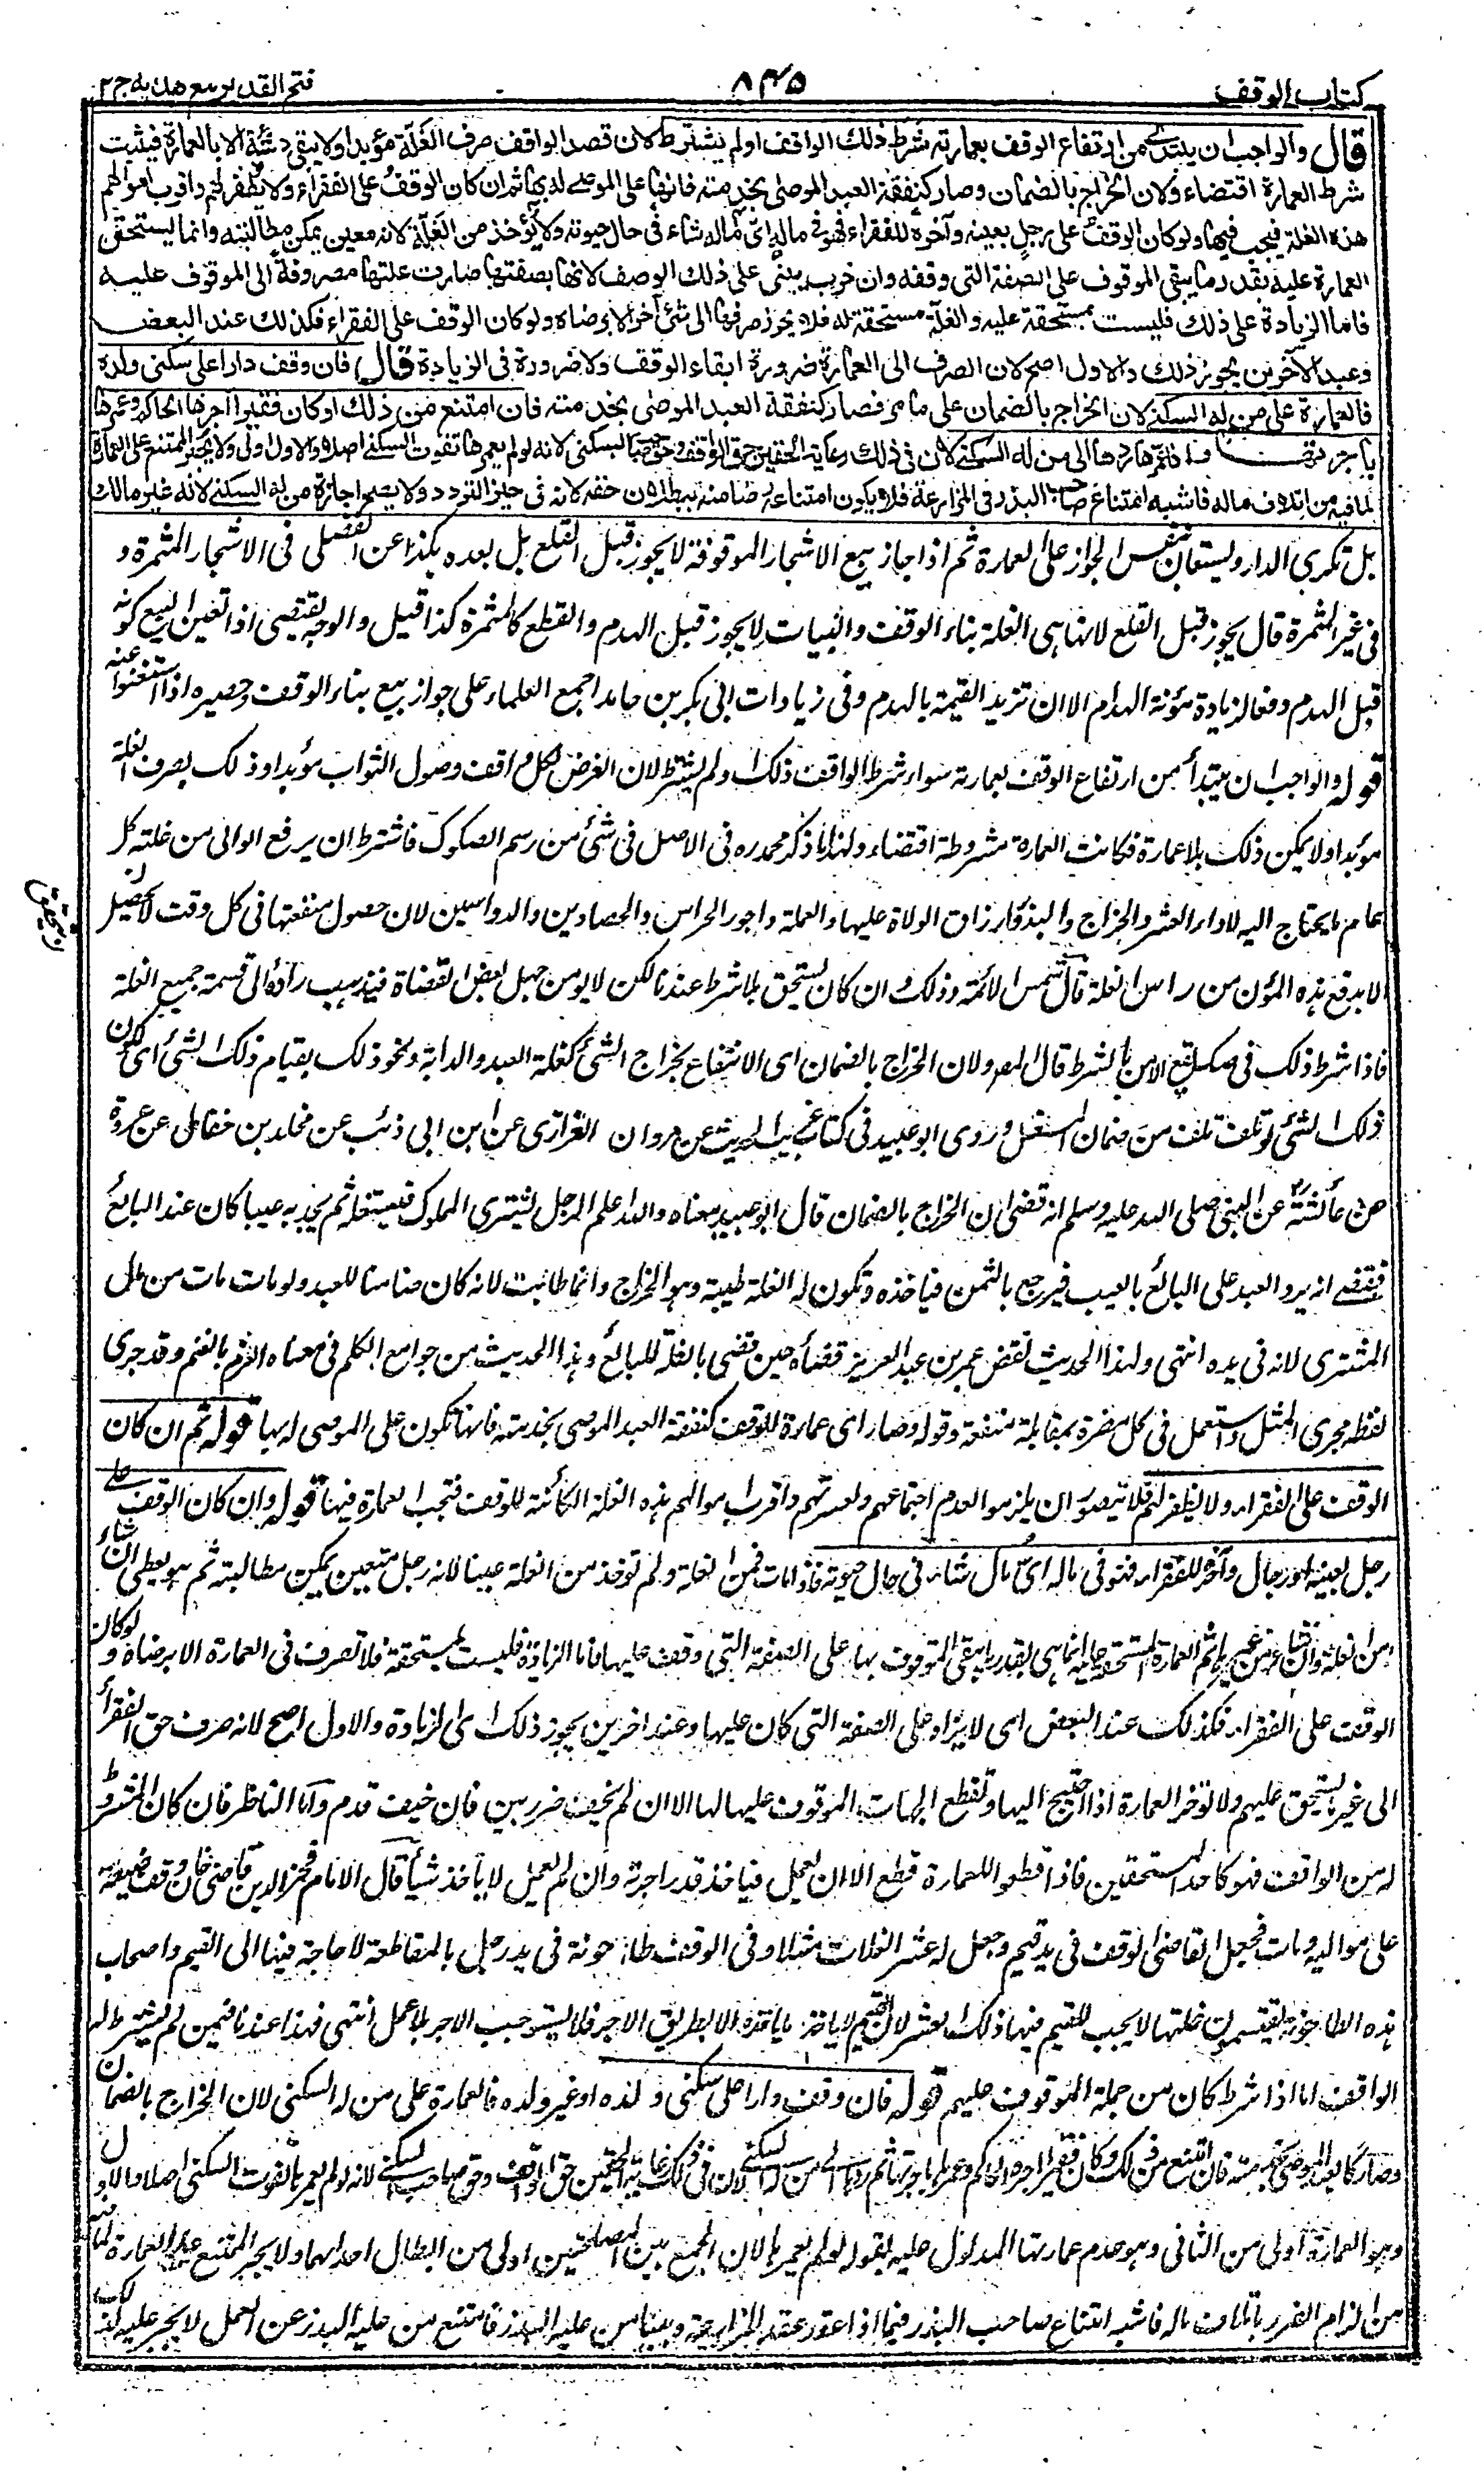 كتاب الوقف
٨٣٥
فتح القدير مع هدايه ج ٢
قال والواجب ان يبتدئ من ارتفاع الوقف بعمارته شرط ذلك الواقف اولم يشترط لان قصد الواقف صرف الغلة مؤبدا ولا يبقى دائمة الا بالعمارة فيثبت
شرط العمارة اقتضاء ولان الخراج بالضمان وصار كنفقة العبد الموصى بخدمته فانها على الموصى له بها ثم ان كان الوقف على الفقراء ولا يظفر بهم واقرب اموالهم
هذه الغلة فيجب فيها ولو كان الوقف على رجل بعينه وآخره للفقراء فهو فى ماله اى ماله شاء فى حال حيوته ولا يؤخذ من الغلة لانه معين يمكن مطالبته وانما يستحق
العمارة عليه بقدر ما يبقى الموقوف على الصفة التى وقفه وان خرب يبنى على ذلك الوصف لانها بصفتها صارت غلتها مصروفة الى الموقوف عليه
فاما الزيادة على ذلك فليست بمستحقة عليه والغلة مستحقة له فلا يجوز صرفها الى شئ آخر الا برضاه ولو كان الوقف على الفقراء فكذلك عند البعض
وعند الآخرين يجوز ذلك والاول اصح لان الصرف الى العمارة ضرورة ابقاء الوقف ولا ضرورة فى الزيادة قال فان وقف دارا على سكنى ولده
فالعمارة على من له السكنى لان الخراج بالضمان على ما مر فصار كنفقة العبد الموصى بخدمته فان امتنع من ذلك او كان فقيرا آجرها الحاكم وعمرها
باجرتها فاذا عمرها ردها الى من له السكنى لان فى ذلك رعاية الحقين حق الواقف وحق صاحب السكنى لانه لو لم يعمرها تفوت السكنى اصلا والاول اولى ولا يجبر الممتنع على العمارة
لما فيه من اتلاف ماله فاشبه امتناع صاحب البذر فى المزارعة فلا يكون امتناعه رضا منه ببطلان حقه لانه فى حيز التردد ولا يصح اجازة من له السكنى لانه غير مالك
بل تكرى الدار ويستعان بنفس الجواز على العمارة ثم اذا جاز بيع الاشجار الموقوفة لا يجوز قبل القلع بل بعده هكذا عن الفضلى فى الاشجار المثمرة و
فى غير المثمرة قال يجوز قبل القلع لانها هى الغلة بناء الوقف والنبات لا يجوز قبل الهدم والقطع كالمثمرة كذا قيل والوجه يقتضى اذا تعين البيع كونه
قبل الهدم دفعا لزيادة مؤنة الهدام الا ان تزيد القيمة بالهدم وفى زيادات ابى بكر بن حامد اجمع العلماء على جواز بيع بناء الوقف وحصيره اذا استغنوا عنه
قوله والواجب ان يبتدأ من ارتفاع الوقف بعمارته سواء شرط الواقف ذلك او لم يشترط لان الغرض لكل واقف وصول الثواب مؤبدا وذلك بصرف الغلة
مؤبدا ولا يمكن ذلك بلا عمارة فكانت العمارة مشروطة اقتضاء ولهذا ذكر محمد ره فى الاصل فى شئ من رسم الصكوك فاشترط ان يرفع الوالى من غلته كل
عام ما يحتاج اليه لاداء العشر والخراج والبذر وارزاق الولاة عليها والعملة واجور الحراس والحصادين والدواسين لان حصول منفعتها فى كل وقت لا يحصل
الا بدفع هذه المؤن من راس الغلة قال شمس الائمة وذلك وان كان يستحق بلا شرط عندنا لكن لا يومن جهل بعض القضاة فيذهب رأيه الى قسمة جميع الغلة
فاذا شرط ذلك فى صكه يقع الامن بالشرط قال المصه ولان الخراج بالضمان اى الانتفاع بخراج الشئ كغلة العبد والدابة ونحو ذلك بقيام ذلك الشئ اى لكون
ذلك الشئ لو تلف تلف من ضمان المستغل وروى ابو عبيد فى كتاب غريب الحديث عن مروان الفزارى عن ابن ابى ذئب عن مخلد بن خفاف عن عروة
عن عائشة عن النبى صلى الله عليه وسلم انه قضى ان الخراج بالضمان قال ابو عبيد معناه والله اعلم الرجل يشترى المملوك فيستغله ثم يجد به عيبا كان عند البائع
فقضى انه يرد العبد على البائع بالعيب فيرجع بالثمن فياخذه وتكون له الغلة طيبة وهو الخراج وانما طابت لانه كان ضامنا للعبد ولو مات مات من مال
المشترى لانه فى يده انتهى ولهذا الحديث نقض عمر بن عبد العزيز قضاءه حين قضى بالغلة للبائع وهذا الحديث من جوامع الكلم فى معناه الغرم بالغنم وقد جرى
لفظه مجرى المثل واستعمل فى كل مضرة بمقابلة منفعة وقوله وصار اى عمارة الوقف كنفقة العبد الموصى بخدمته فانها تكون على الموصى له بها قوله ثم ان كان
الوقف على الفقراء ولا يظفر بهم فلا يتصور ان يلزموا لعدم اجتماعهم ولعسرتهم واقرب اموالهم هذه الغلة الكائنة للوقف فتجب العمارة فيها قوله وان كان الوقف على
رجل بعينه او رجال وآخره للفقراء فهو فى ماله اى مال شاء فى حال حيوته فاذا مات فمن الغلة ولم تؤخذ من الغلة عينا لانه رجل متعين يمكن مطالبته ثم هو يعطى ان شاء
من الغلة وان شاء من غيرها ثم العمارة المستحقة عليه انما هى بقدر ما يبقى الموقوف بها على الصفة التى وقف عليها فاما الزيادة فليست بمستحقة فلا تصرف فى العمارة الا برضاه ولو كان
الوقف على الفقراء فكذلك عند البعض اى لا يزاد على الصفة التى كان عليها وعند اخرين يجوز ذلك اى الزيادة والاول اصح لانه صرف حق الفقراء
الى غير ما يستحق عليهم ولا تؤخر العمارة اذا احتيج اليها وتقطع الجهات الموقوف عليها لها الا ان لم يخف ضرر بين فان خيف قدم واما الناظر فان كان المشروط
له من الواقف فهو كاحد المستحقين فاذا قطعوا للعمارة قطع الا ان يعمل فياخذ قدر اجرته وان لم يعمل لا يأخذ شيأ قال الامام فخر الدين قاضى خان وقف ضيعة
على مواليه ومات فجعل القاضى الوقف فى يد قيم وجعل له عشر الغلات مثلا وفى الوقف طاحونة فى يد رجل بالمقاطعة لا حاجة فيها الى القيم واصحاب
هذه الطاحونة يقتسمون غلتها لا يجب للقيم فيها ذلك العشر لان القيم لا ياخذ ما ياخذه الا بطريق الاجر فلا يستوجب الاجر بلا عمل انتهى فهذا عندنا فيمن لم يشترط له
الواقف اما اذا شرط كان من جملة الموقوف عليهم قوله فان وقف دارا على سكنى ولده او غير ولده فالعمارة على من له السكنى لان الخراج بالضمان
وصار كالعبد الموصى بخدمته فان امتنع من ذلك او كان فقيرا آجره الحاكم وعمرها باجرتها ثم ردها الى من له السكنى لان فى ذلك رعاية الحقين حق الواقف وحق صاحب السكنى لانه لو لم يعمرها تفوت السكنى اصلا والاول
وهو العمارة اولى من الثانى وهو عدم عمارتها المدلول عليه بقوله لو لم يعمرها لان الجمع بين المصلحتين اولى من ابطال احداهما ولا يجبر الممتنع على العمارة لما فيه
من الزام الضرر باتلاف ماله فاشبه امتناع صاحب البذر فيما اذا عقد عقد المزارعة وبينا من عليه البذر فامتنع من عليه البذر عن العمل لا يجبر عليه